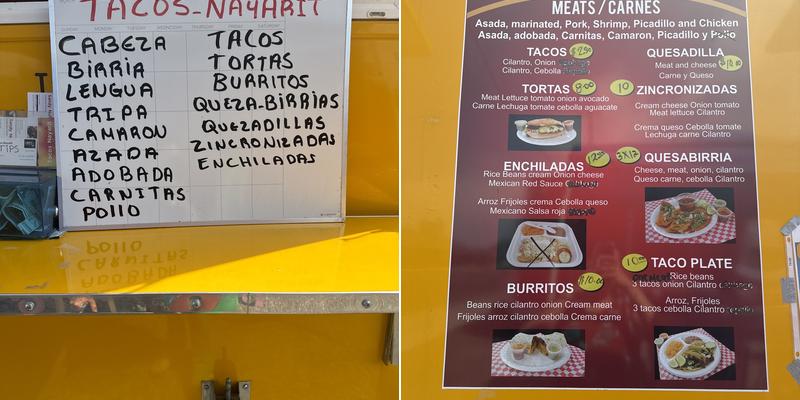 TACOS-NAYARIT
CABEZA
BIRRIA
LENGUA
TRIPA
CAMARON
AZADA
ADOBADA
CARNITAS
POLLO
TACOS
TORTAS
BURRITOS
QUEZA-BIRRIAS
QUEZADILLAS
ZINCRONIZADAS
ENCHILADAS
TIPS
MEATS / CARNES
Asada, marinated, Pork, Shrimp, Picadillo and Chicken
Asada, adobada, Carnitas, Camaron, Picadillo y Pollo
TACOS
Cilantro, Onion
Cilantro, Cebolla
TORTAS 8.00
Meat Lettuce tomato onion avocado
Carne Lechuga tomate cebolla aguacate
ENCHILADAS
Rice Beans cream Onion cheese
Mexican Red Sauce
Arroz Frijoles crema Cebolla queso
Mexicano Salsa roja
BURRITOS $10.00
Beans rice cilantro onion Cream meat
Frijoles arroz cilantro cebolla Crema carne
QUESADILLA
Meat and cheese
Carne y Queso
10 ZINCRONIZADAS
Cream cheese Onion tomato
Meat lettuce Cilantro
Crema queso Cebolla tomate
Lechuga carne Cilantro
3X12 QUESABIRRIA
Cheese, meat, onion, cilantro
Queso carne, cebolla Cilantro
TACO PLATE
Rice beans
3 tacos onion Cilantro
Arroz, Frijoles
3 tacos cebolla Cilantro